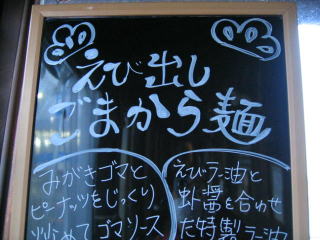 えび出し
ごまから麺
みがきゴマと
ピーナッツをじっくり
炒めてゴマソース
えびラー油と
虾醤を合わせ
た特製ラー油